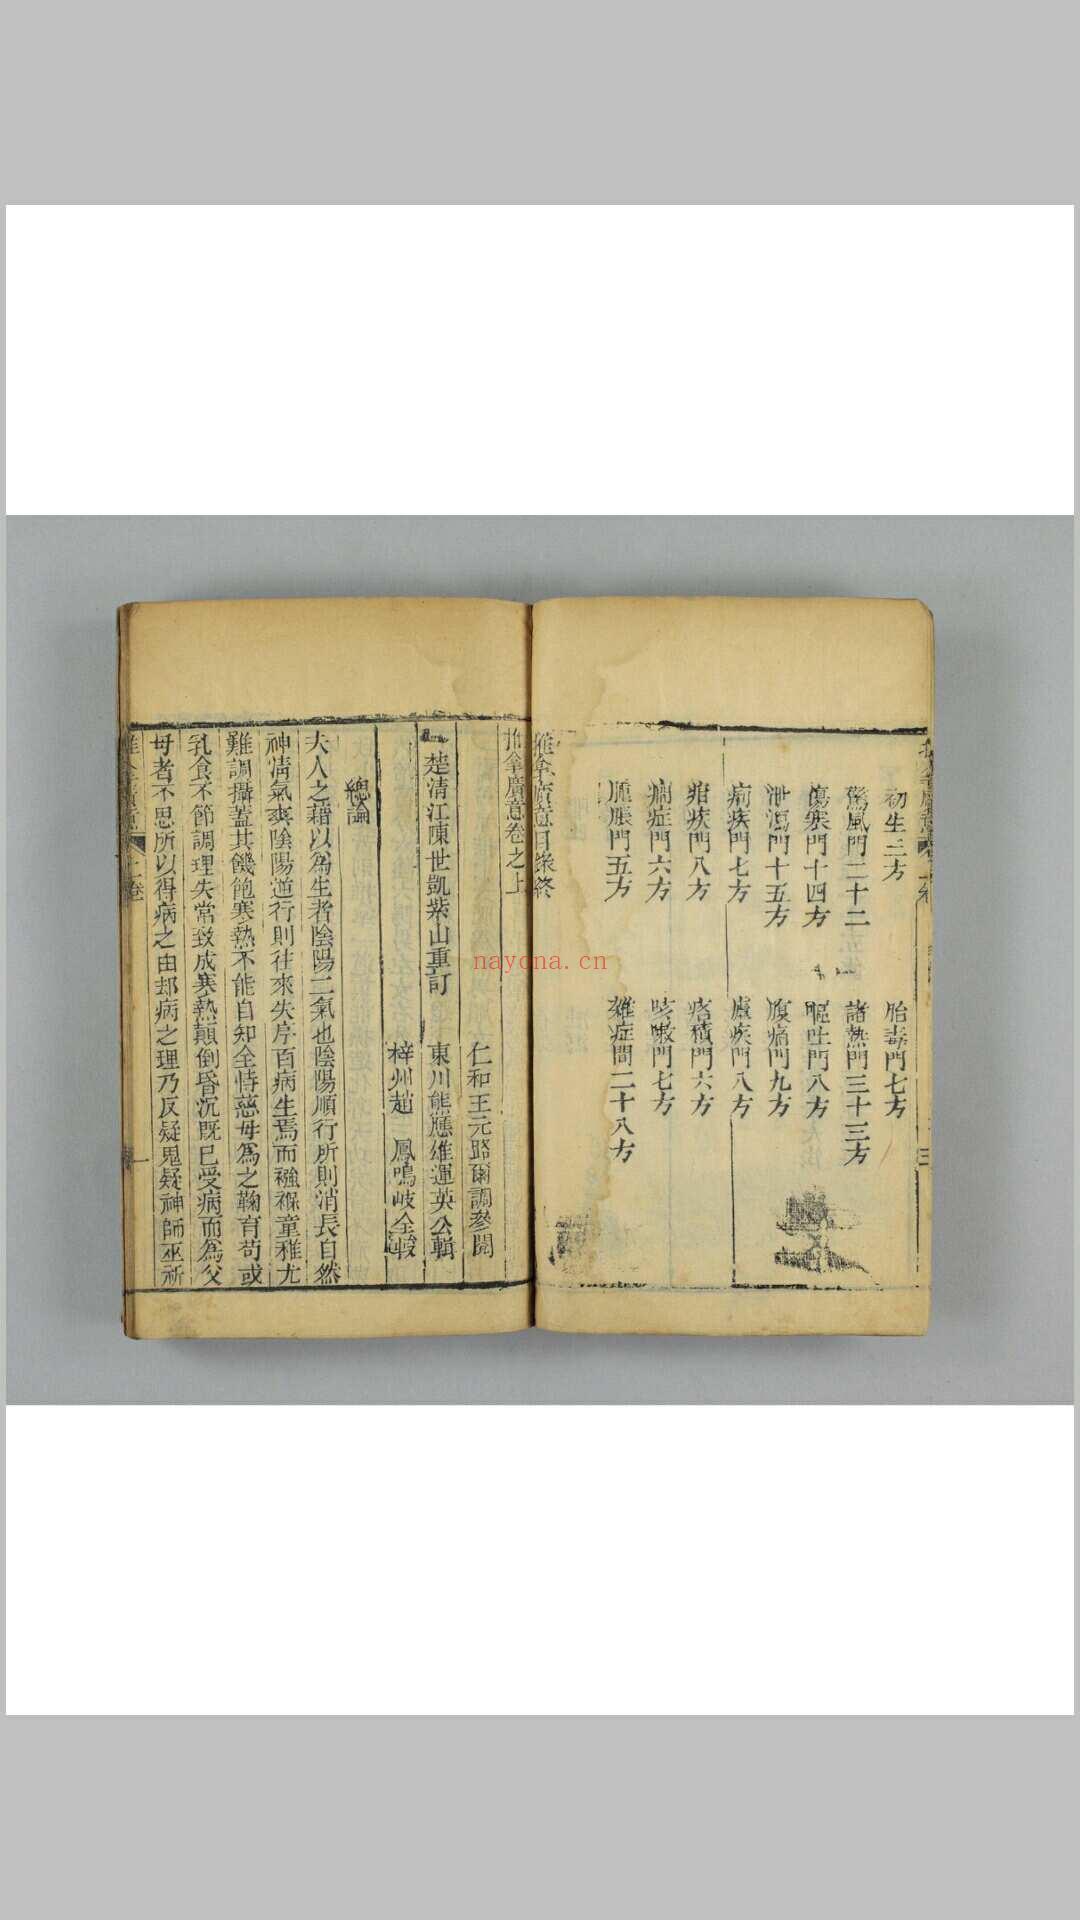 初生三方
胎毒門七方
驚風門二十二
諸熱門三十三方
傷寒門十四方
嘔吐門八方
泄瀉門十五方
腹痛門九方
痢疾門七方
瘧疾門八方
疳疾門八方
痞積門六方
癇症門六方
咳嗽門七方
腫脹門五方
雜症間二十八方
推拿廣意目錄終
推拿廣意卷之上
仁和王元路爾調參閱
楚清江陳世凱紫山重訂
東川熊應雄運英公輯
梓州趙 鳳鳴岐仝嘏
總論
夫人之藉以為生者陰陽二氣也陰陽順行所則消長自然
神清氣爽陰陽逆行則往來失序百病生焉而襁褓童稚尤
難調攝蓋其饑飽寒熱不能自知全恃慈母為之鞠育苟或
乳食不節調理失常致成寒熱顛倒昏沉既已受病而為父
母者不思所以得病之由却病之理乃反疑鬼疑神師巫祈
nayona.cn